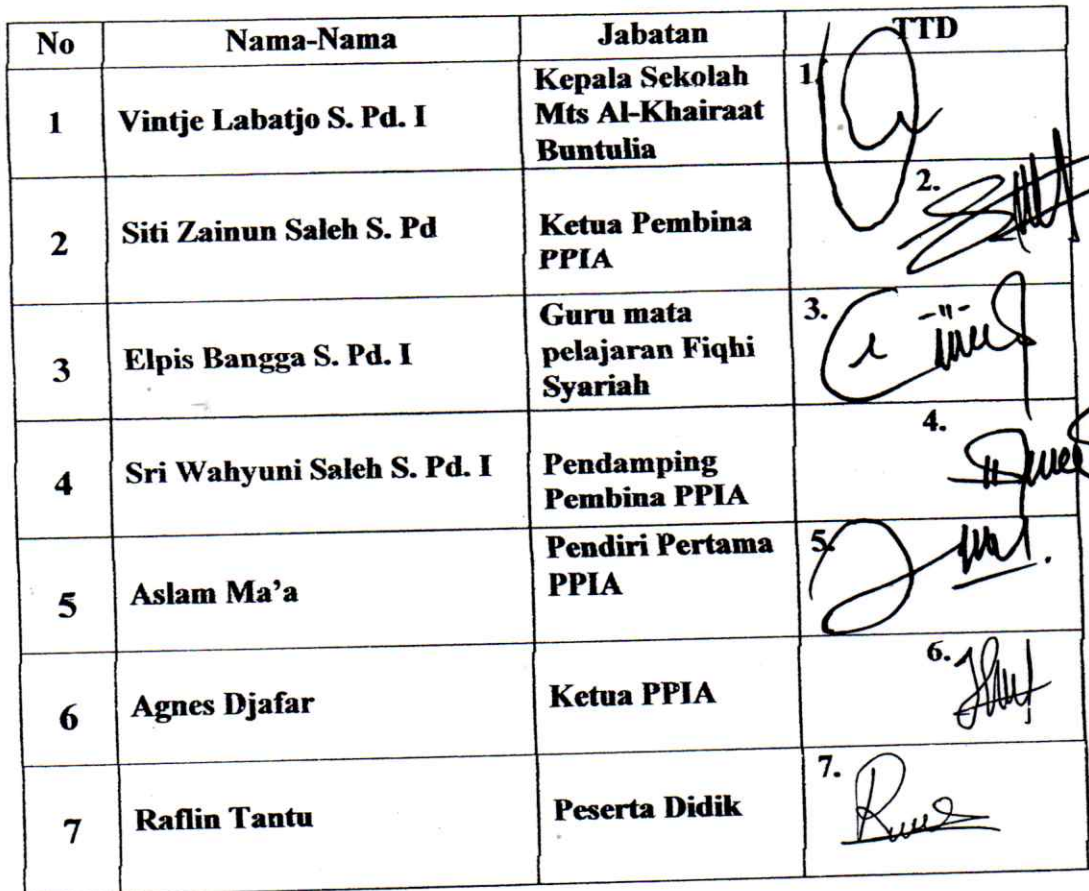 No Nama-Nama Jabatan TTD
1 Vintje Labatjo S. Pd. I Kepala Sekolah Mts Al-Khairaat Buntulia 1.
2 Siti Zainun Saleh S. Pd Ketua Pembina PPIA 2.
3 Elpis Bangga S. Pd. I Guru mata pelajaran Fiqhi Syariah 3.
4 Sri Wahyuni Saleh S. Pd. I Pendamping Pembina PPIA 4.
5 Aslam Ma'a Pendiri Pertama PPIA 5.
6 Agnes Djafar Ketua PPIA 6.
7 Raflin Tantu Peserta Didik 7.